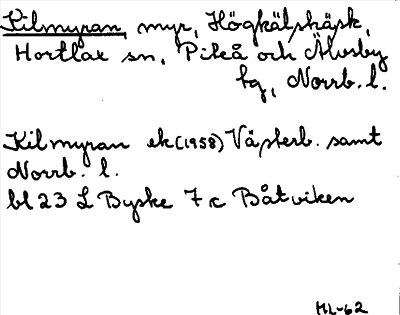 Kilmyran, myr, Högkälskäpk,
Hortlax sn, Piteå och Älvsby
tg, Norrb. l.
Kilmyran ek (1958) Västerb. samt
Norrb. l.
bl 23 L Byske 7 c Båtviken
ML-62